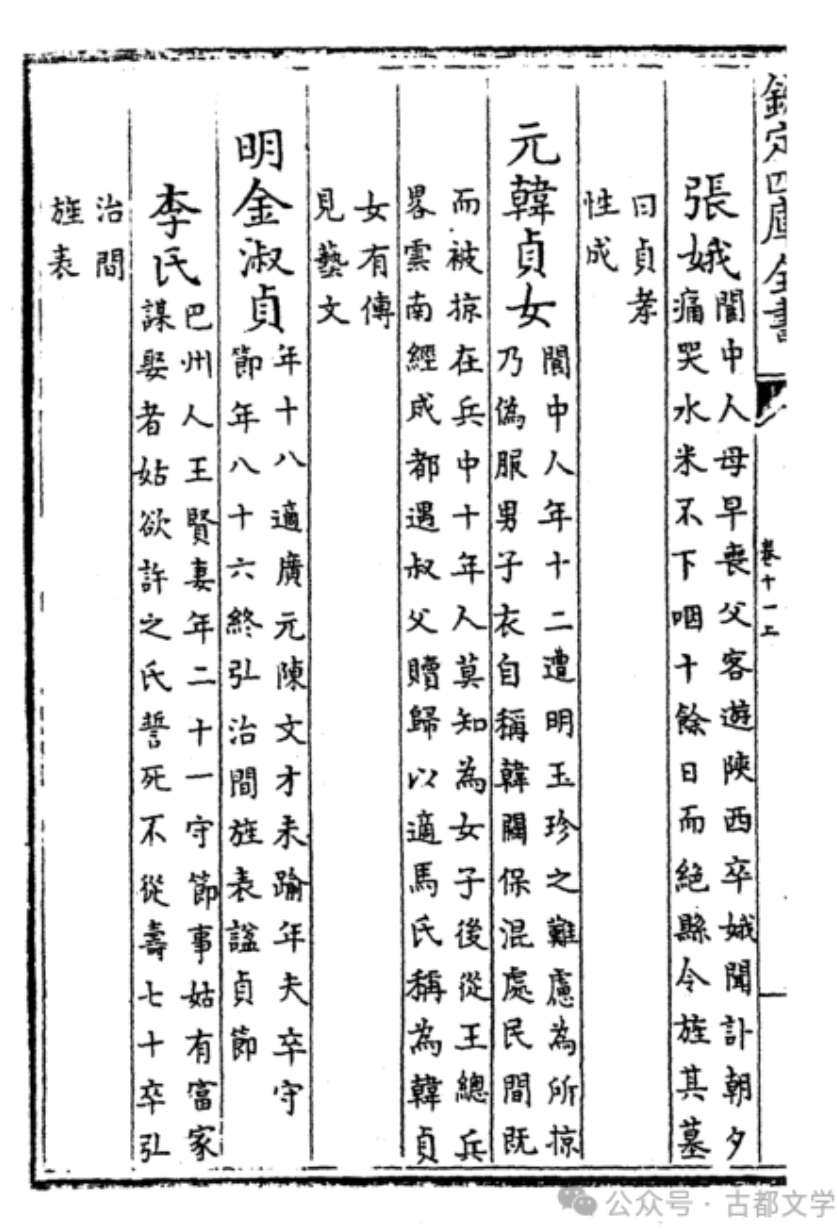 欽定四庫全書
卷十一上
張娥
閬中人母早喪父客遊陝西卒娥聞訃朝夕
痛哭水米不下咽十餘日而絶縣令旌其墓
曰貞孝
性成
元韓貞女
閬中人年十二遭明玉珍之難慮為所掠
乃偽服男子衣自稱韓關保混處民間既
而被掠在兵中十年人莫知為女子後從王總兵
畧雲南經成都遇叔父贖歸以適馬氏稱為韓貞
女有傳
見藝文
明金淑貞
年十八適廣元陳文才未踰年夫卒守
節年八十六終弘治間旌表諡貞節
李氏
巴州人王賢妻年二十一守節事姑有富家
謀娶者姑欲許之氏誓死不從壽七十卒弘
治間
旌表
公众号·古都文学